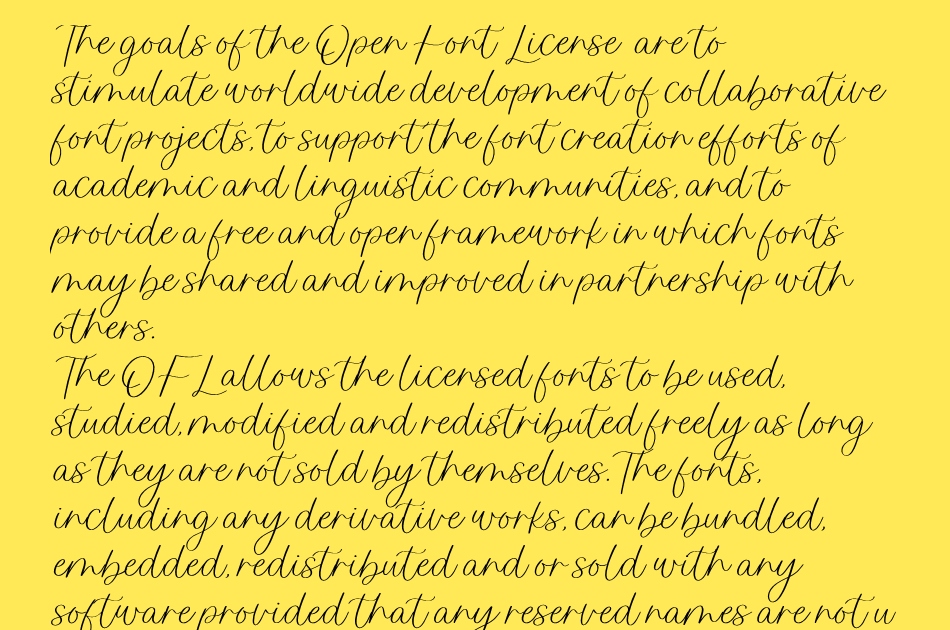 The goals of the Open Font License are to
stimulate worldwide development of collaborative
font projects, to support the font creation efforts of
academic and linguistic communities, and to
provide a free and open framework in which fonts
may be shared and improved in partnership with
others.
The OFL allows the licensed fonts to be used,
studied, modified and redistributed freely as long
as they are not sold by themselves. The fonts,
including any derivative works, can be bundled,
embedded, redistributed and or sold with any
software provided that any reserved names are not u